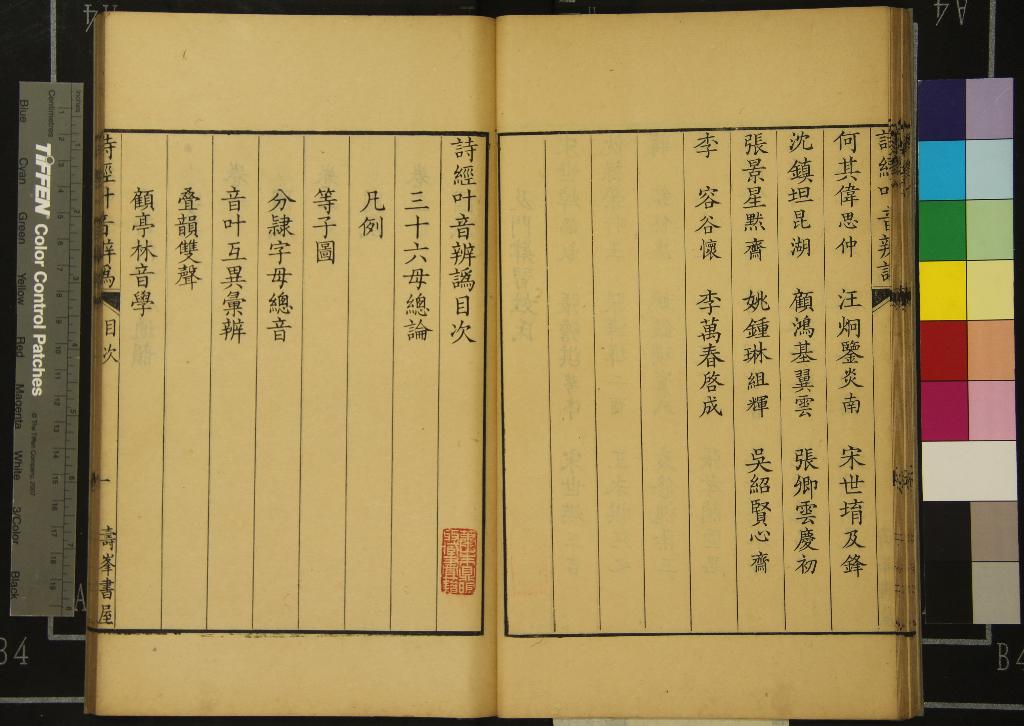 詩經叶音辨譌
何其偉思仲 汪炯鑒炎南 宋世堉及鋒
沈鎮坦昆湖 顧鴻基翼雲 張卿雲慶初
張景星黙齋 姚鍾琳組輝 吳紹賢心齋
李 容谷懷 李萬春啓成
詩經叶音辨譌目次
三十六母總論
凡例
等子圖
分隷字母總音
音叶互異彙辨
疊韻雙聲
顧亭林音學
詩經叶音辨譌 目次 一 壽峯書屋
TIFFEN Color Control Patches
© The Tiffen Company, 2007
Centimetres
Inches
Blue Cyan Green Yellow Red Magenta White 3/Color Black
A4
A4
B4
B4